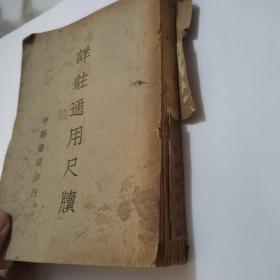 詳註通用尺牘
中華書局印行